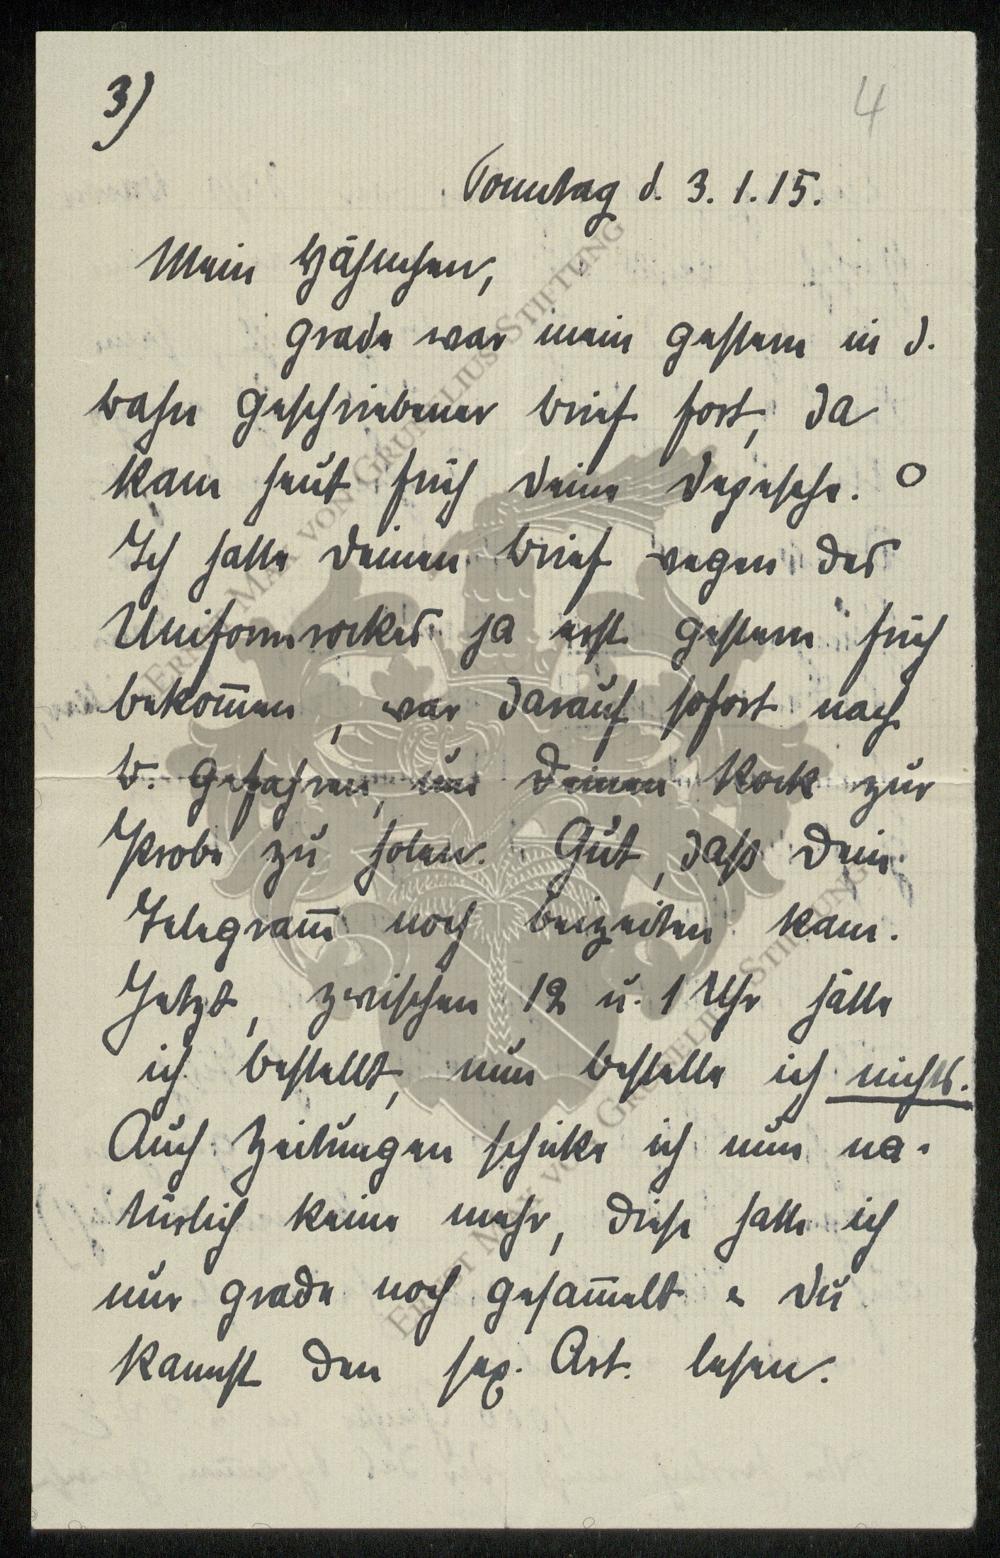 3)
4
Sonntag d. 3.1.15.
Mein Hähnchen,
grade war mein gestern in d.
Bahn geschriebener Brief fort, da
kam heut früh Deine Depesche. O
Ich hatte Deinen Brief wegen des
Uniformrockes ja erst gestern früh
bekom̄en, war darauf sofort nach
B. gefahren, um Deinen Rock zur
Probe zu holen. Gut, daß Dein
Telegram̄ noch beizeiten kam.
Jetzt, zwischen 12 u. 1 Uhr hätte
ich bestellt, nun bestelle ich nichts.
Auch Zeitungen schicke ich nun na-
türlich keine mehr, diese hatte ich
nur grade noch gesam̄elt & Du
kannst den sep. Art. lesen.
ERNST MAX VON GRUNELIUS-STIFTUNG
ERNST MAX VON GRUNELIUS-STIFTUNG